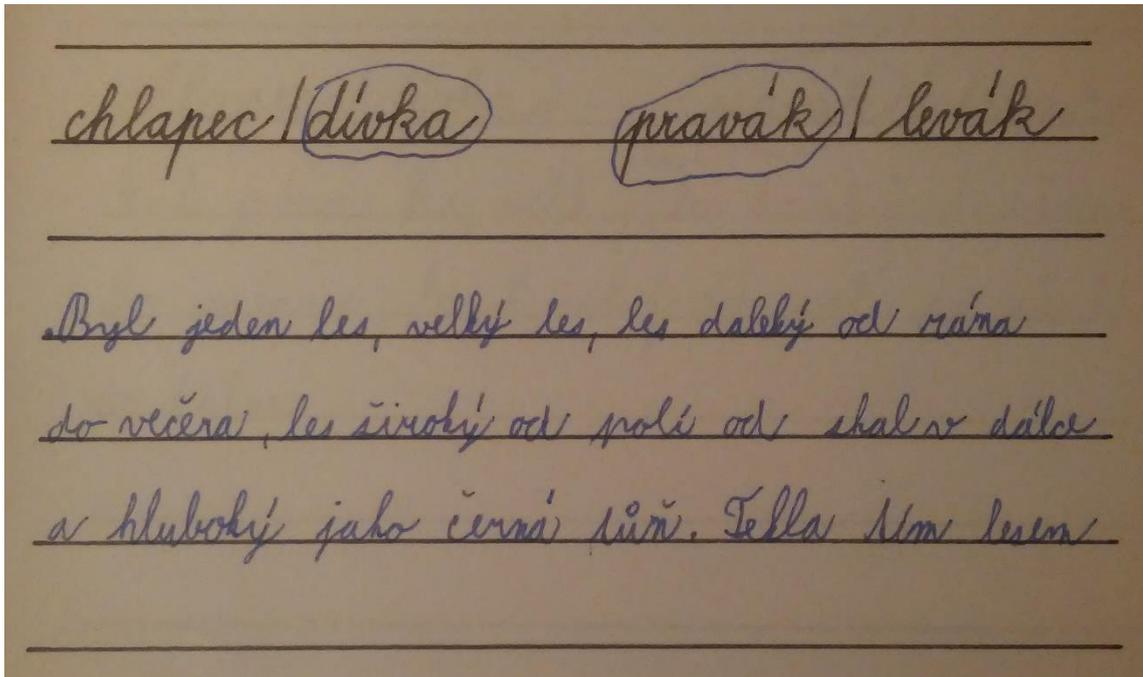 chlapec / dívka pravák / levák
Byl jeden les, velký les, les daleký od rána
do večera, les široký od polí od skal v dálce
a hluboký jako černá tůň. Tekla tím lesem